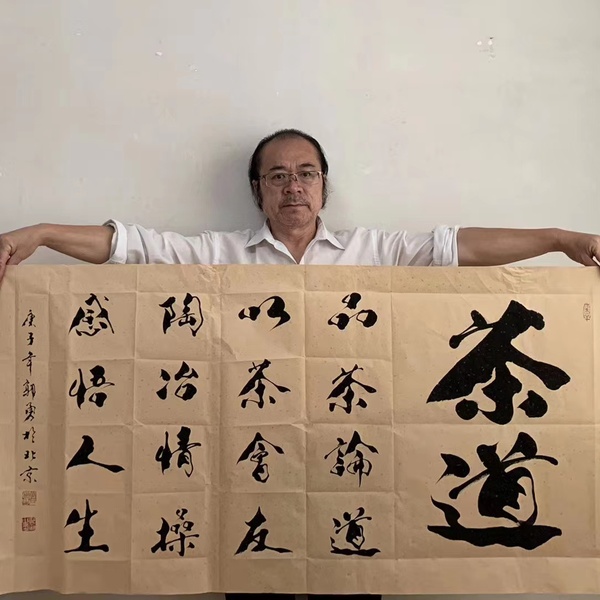 茶道
品茶論道
以茶會友
陶冶情操
感悟人生
庚子年郭勇於北京